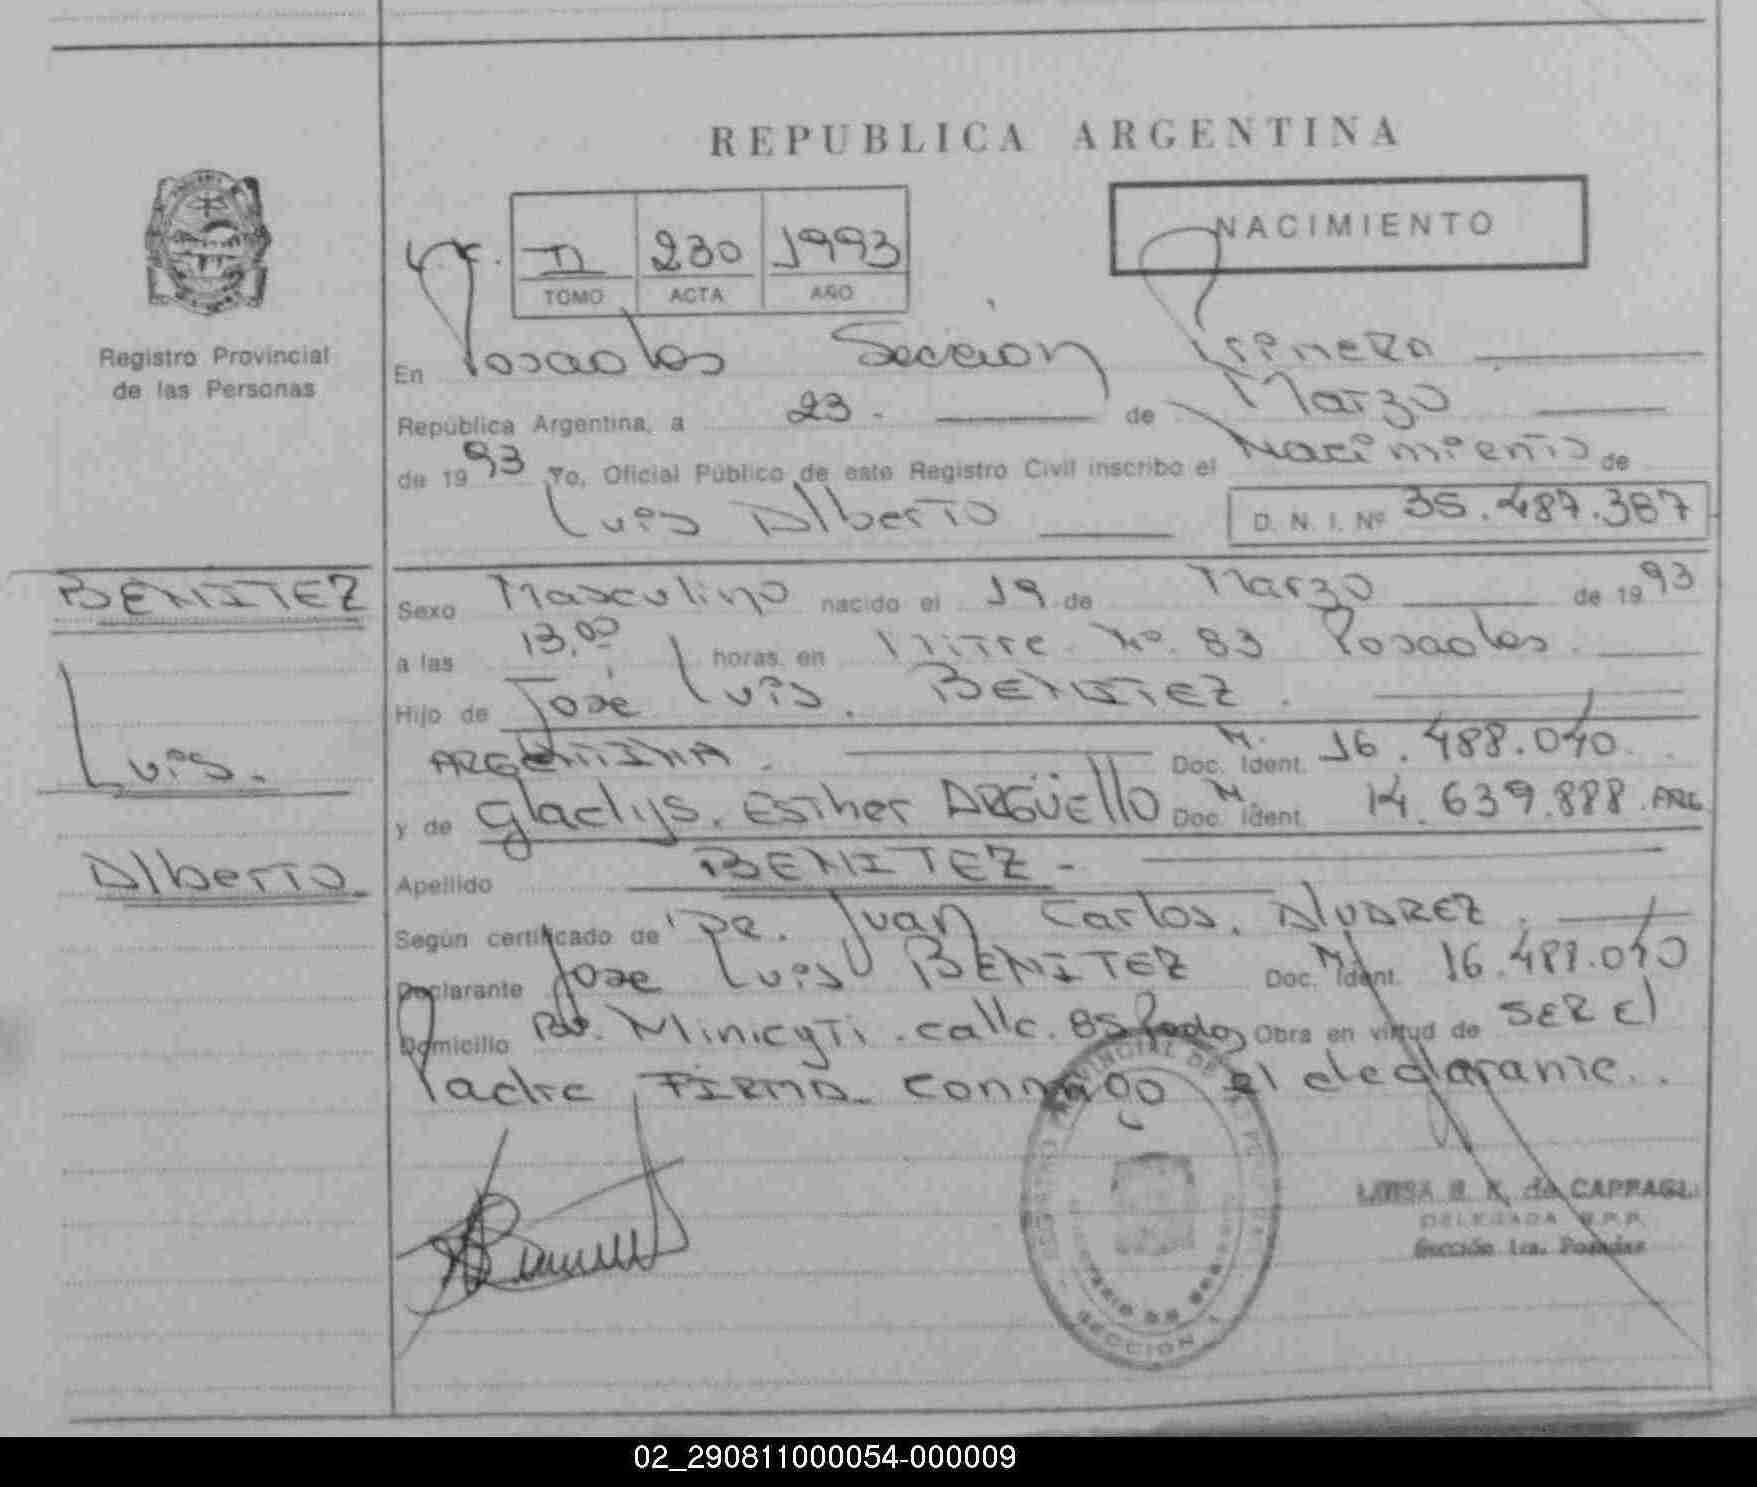 REPUBLICA ARGENTINA
NACIMIENTO
II 230 1993
TOMO ACTA AÑO
Registro Provincial
de las Personas
En Posadas Sección Primera
República Argentina, a 23. de Marzo
de 1993 Yo, Oficial Público de este Registro Civil inscribo el Nacimiento de
Luis Alberto D. N. I. Nº 35.487.367
BENITEZ
Luis.
Alberto
Sexo Masculino nacido el 19 de Marzo de 1993
a las 13,00 horas, en Mitre Nº. 83 Posadas.
Hijo de José Luis. BENITEZ.
ARGENTINA. M. Doc. Ident. 16.488.040
y de Gladys. Esther ARGÜELLO M. Doc. Ident. 14.639.888. ARG
Apellido BENITEZ -
Según certificado de Dr. Juan Carlos. ALVAREZ.
Declarante Jose Luis BENITEZ M. Doc. Ident. 16.488.040
Domicilio Bº. calle. 85 Obra en virtud de SER El
Padre FIRMA conmigo el declarante..
DELEGADA R.P.P.
Sección 1ra. Posadas
SECCION 1
02_290811000054-000009